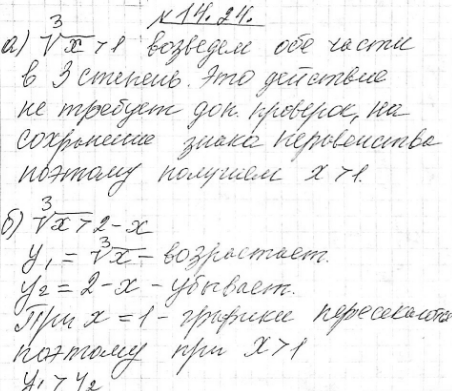 № 14.24.
а) ∛x > 1 возведем обе части
в 3 степень. Это действие
не требует доп. проверок, на
сохранение знака неравенства
поэтому получаем x > 1.
б) ∛x > 2 - x
y₁ = ∛x - возрастает.
y₂ = 2 - x - убывает.
При x = 1 - графики пересекаются
поэтому при x > 1
y₁ > y₂